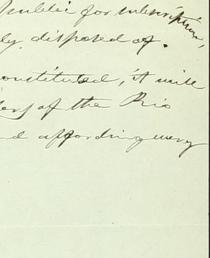 Public for subscription,
ly disposed of.
constituted, it will
of the Rio
d affording every